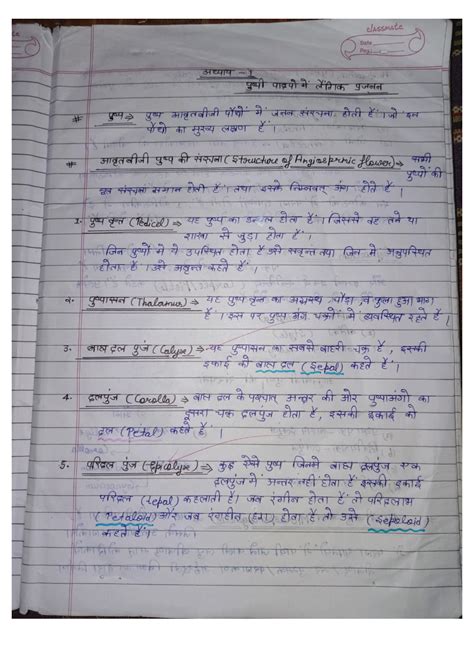 classmate
Date
Page
अध्याय - 1
पुष्पी पादपों में लैंगिक प्रजनन
# पुष्प ⇒ पुष्प आवृतबीजी पौधों में जनन संरचना होती हैं। जो इन
पौधों का मुख्य लक्षण हैं।
# आवृतबीजी पुष्प की संरचना (Structure of Angiospermic flower) ⇒ सभी
पुष्पों की
मूल संरचना समान होती हैं। तथा इसके निम्नवत् अंग होते हैं।
1. पुष्प वृन्त (Pedical) ⇒ यह पुष्प का डन्ठल होता हैं। जिससे वह तने या
शाखा से जुड़ा होता हैं।
जिन पुष्पों में ये उपस्थित होता हैं उसे सवृन्त तथा जिन में अनुपस्थित
होता हैं। उसे अवृन्त कहते हैं।
2. पुष्पासन (Thalamus) ⇒ यह पुष्प वृन्त का अग्रस्थ चौड़ा व फुला हुआ भाग
हैं। इस पर पुष्प अंग चक्रों में व्यवस्थित रहते हैं।
3. बाह्य दल पुंज (Calyx) ⇒ यह पुष्पासन का सबसे बाहरी चक्र हैं, इसकी
इकाई को बाह्य दल (Sepal) कहते हैं।
4. दलपुंज (Corolla) ⇒ बाह्य दल के पश्चात् अन्दर की ओर पुष्पांगो का
दूसरा चक्र दलपुंज होता हैं, इसकी इकाई को
दल (Petal) कहते हैं।
5. परिदल पुंज (Epicalyx) ⇒ कुछ ऐसे पुष्प जिनमे बाह्य दलपुंज एक
दलपुंज में अन्तर नहीं होता हैं इसकी इकाई
परिदल (tepal) कहलाती हैं। जब रंगीन होता हैं तो परिदलाभ
(Petaloid) और जब रंगहीन (हरा) होता हैं तो उसे (Sepaloid)
कहते हैं।